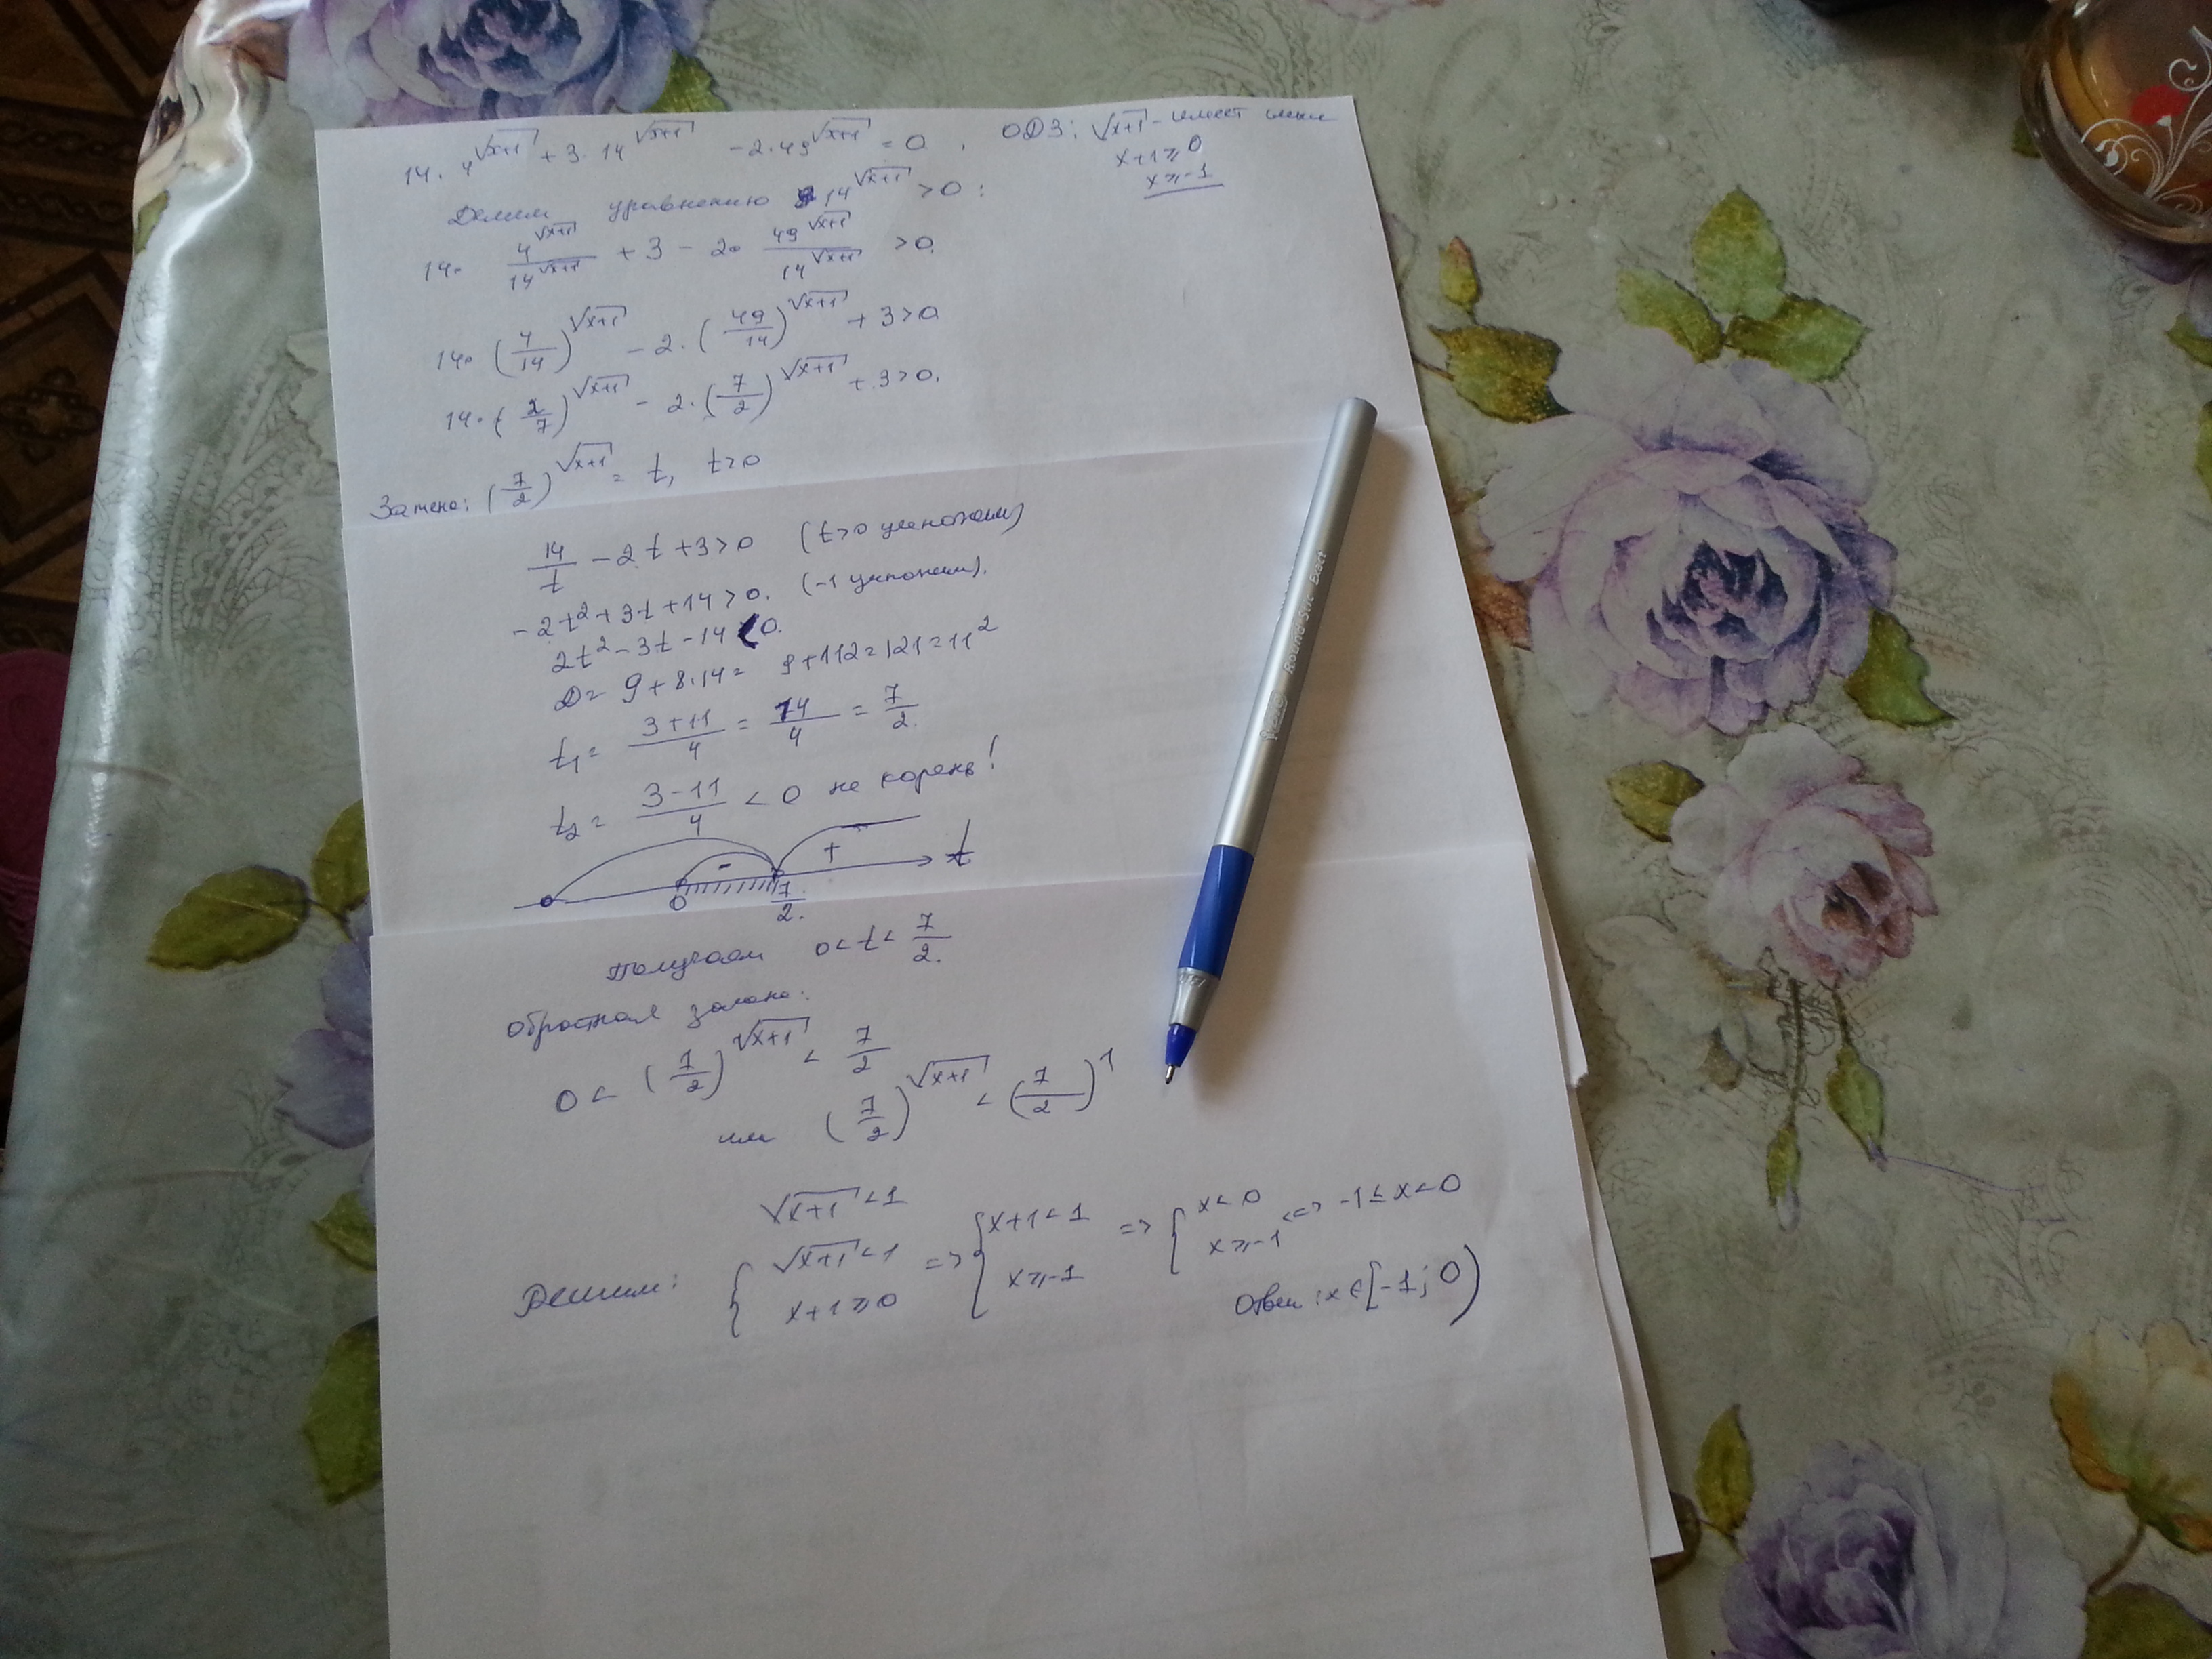 14· 4^√(x+1) + 3·14^√(x+1) - 2·49^√(x+1) = 0. ОДЗ: √(x+1) - имеет смысл
x+1≥0
x≥-1
Делим уравнению 14^√(x+1) >0:
14· 4^√(x+1)/14^√(x+1) + 3 - 2· 49^√(x+1)/14^√(x+1) >0.
14· (4/14)^√(x+1) - 2·(49/14)^√(x+1) + 3>0
14·(2/7)^√(x+1) - 2·(7/2)^√(x+1) + 3>0.
Замена: (7/2)^√(x+1) = t, t>0
14/t - 2t +3>0 (t>0 умножаем)
-2t²+3t+14>0. (-1 умножаем).
2t²-3t-14<0.
D= 9+8·14= 9+112=121=11²
t₁= (3+11)/4 = 14/4 = 7/2
t₂= (3-11)/4 < 0 не корень!
- + t
0 7/2.
Получаем 0<t< 7/2.
Обратная замена:
0 < (7/2)^√(x+1) < 7/2
или (7/2)^√(x+1) < (7/2)^1
√(x+1) <1
Решим: { √(x+1) <1 x+1≥0 => { x+1<1 x≥-1 => { x<0 x≥-1 <=> -1≤x<0
Ответ: x∈[-1;0)
Round Stic Exact